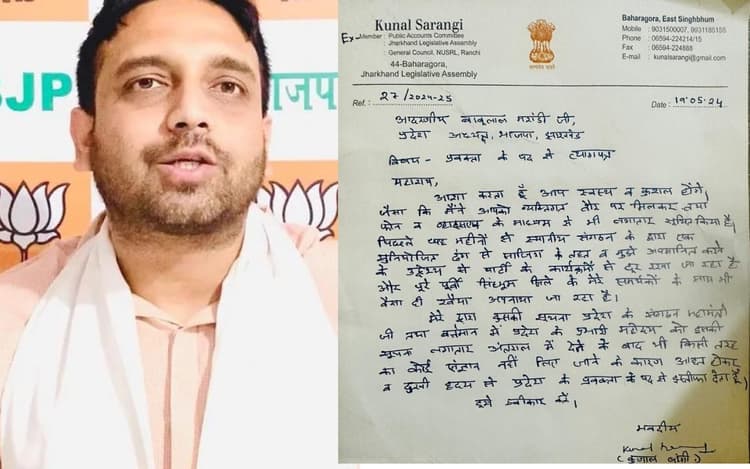 BJP
भाजपा
Kunal Sarangi
Ex- Member : Public Accounts Committee
Jharkhand Legislative Assembly
General Council, NUSRL, Ranchi
44-Baharagora,
Jharkhand Legislative Assembly
Baharagora, East Singhbhum
Mobile : 9031500007, 9931185155
Phone : 06594-224214/15
Fax : 06594-224888
E-mail : kunalsarangi@gmail.com
Ref.: 27/2024-25
Date : 19.05.24
आदरणीय बाबुलाल मरांडी जी,
प्रदेश अध्यक्ष, भाजपा, झारखंड
विषय - प्रवक्ता के पद से त्यागपत्र
महाशय,
आशा करता हूँ आप स्वस्थ व कुशल होंगे।
जैसा कि मैंने आपको व्यक्तिगत तौर पर मिलकर तथा
फोन व व्हाट्सएप के माध्यम से भी लगातार सूचित किया है।
पिछले महीनों से स्थानीय संगठन के द्वारा एक
सुनियोजित ढंग से साजिश के तहत व मुझे अपमानित करने
के उद्देश्य से पार्टी के कार्यक्रमों से दूर रखा जा रहा है
और पूरे पूर्वी सिंहभूम जिले के मेरे समर्थकों के साथ भी
वैसा ही रवैया अपनाया जा रहा है।
मेरे द्वारा इसकी सूचना प्रदेश के संगठन महामंत्री
जी तथा वर्तमान में प्रदेश के प्रभारी महोदय को इसकी
सूचना लगातार अंतराल में देने के बाद भी किसी तरह
का कोई संज्ञान नहीं लिए जाने के कारण आहत होकर
व दुखी हृदय से प्रदेश के प्रवक्ता के पद से इस्तीफा देता हूँ।
इसे स्वीकार करें।
भवदीय
(कुणाल षाड़ंगी)